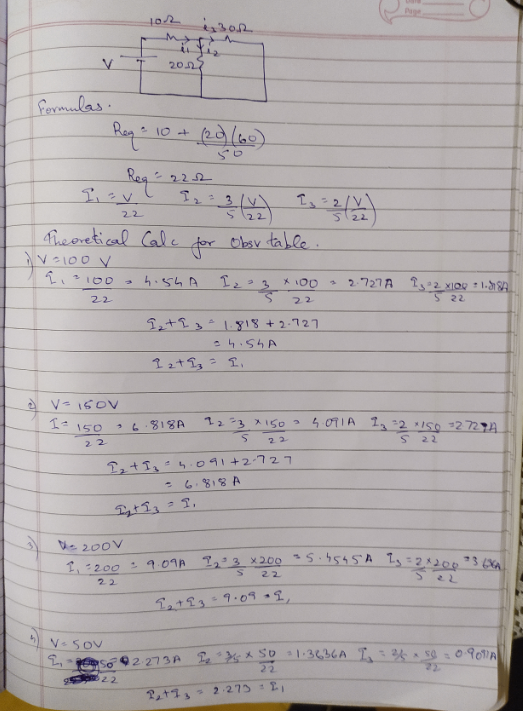 Date
Page
10Ω i₃ 30Ω
i₁ i₂
V 20Ω
Formulas.
Req = 10 + (20)(60)/50
Req = 22Ω
I₁ = V/22 I₂ = 3/5 (V/22) I₃ = 2/5 (V/22)
Theoretical Calc for Obsv table.
1) V=100 V
I₁ = 100/22 = 4.54A I₂ = 3/5 × 100/22 = 2.727A I₃ = 2/5 × 100/22 = 1.818A
I₂+I₃ = 1.818 + 2.727
= 4.54A
I₂+I₃ = I₁
2) V= 150V
I = 150/22 = 6.818A I₂ = 3/5 × 150/22 = 4.091A I₃ = 2/5 × 150/22 = 2.727A
I₂+I₃ = 4.091 + 2.727
= 6.818 A
I₂+I₃ = I₁
3) V= 200V
I₁ = 200/22 = 9.09A I₂ = 3/5 × 200/22 = 5.4545A I₃ = 2/5 × 200/22 = 3.636A
I₂+I₃ = 9.09 = I₁
4) V= 50V
I₁ = 50/22 = 2.273A I₂ = 3/5 × 50/22 = 1.3636A I₃ = 2/5 × 50/22 = 0.9091A
I₂+I₃ = 2.273 = I₁